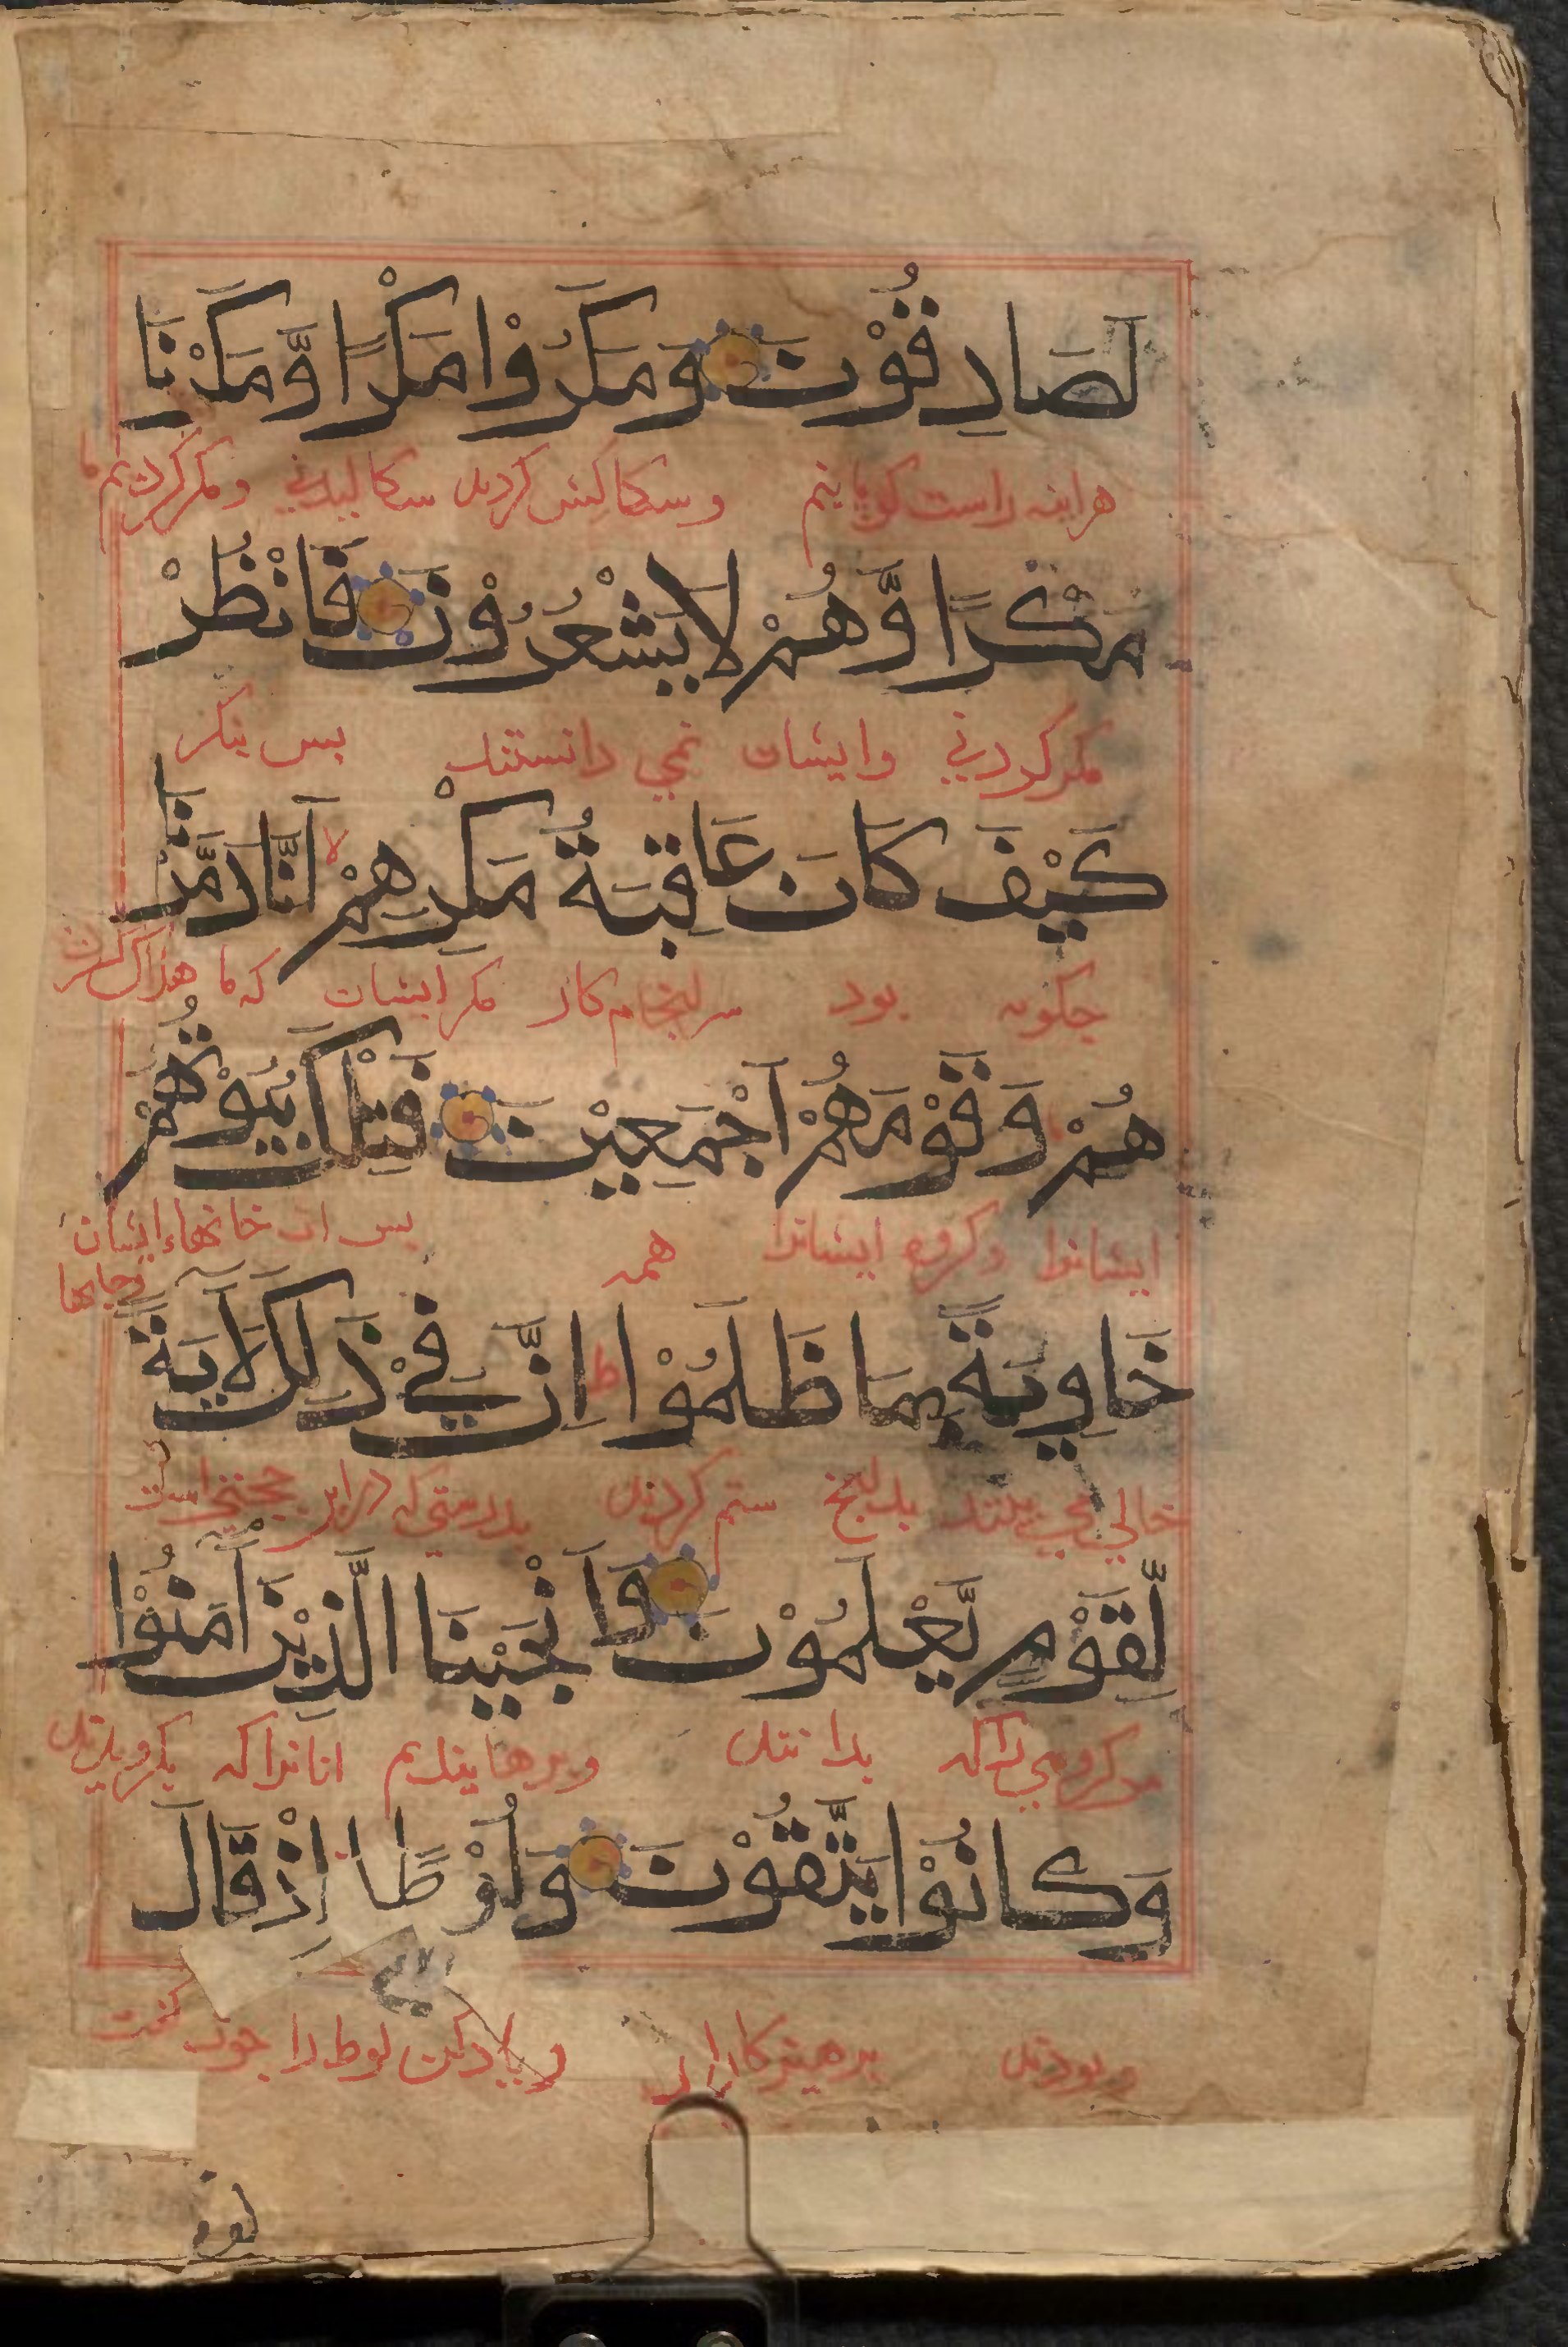 لَصَادِقُوْنَ وَمَكَرُوْا مَكْرًا وَّمَكَرْنَا
هراینه راست کویانیم وسکالش کردند سکالیدنی ومکر کردیم ما
مَكْرًا وَّهُمْ لَا يَشْعُرُوْنَ فَانْظُرْ
مکر کردنی وایشان نمی دانستند بس بنکر
كَيْفَ كَانَ عَاقِبَةُ مَكْرِهِمْ لا اَنَّا دَمَّرْنَا
جکونه بود سرانجام کار مکر ایشان که ما هلاک کردن
هُمْ وَقَوْمَهُمْ اَجْمَعِيْنَ فَتِلْكَ بُيُوْتُهُمْ
ایشانرا وکروه ایشانرا همه بس ان خانهاء ایشان
وجایها
خَاوِيَةً بِمَا ظَلَمُوْا ط اِنَّ فِيْ ذٰلِكَ لَاٰيَةً
خالی می بینند بدانج ستم کردند بدرستی که دراین حجتی است
لِّقَوْمٍ يَّعْلَمُوْنَ وَاَنْجَيْنَا الَّذِيْنَ اٰمَنُوْا
مرکروهی را که بدانند وبرهانیدیم انانرا که بکرویدند
وَكَانُوْا يَتَّقُوْنَ وَلُوْطًا اِذْ قَالَ
وبودند برهیزکاران ویادکن لوط را جون کفت
لقومه